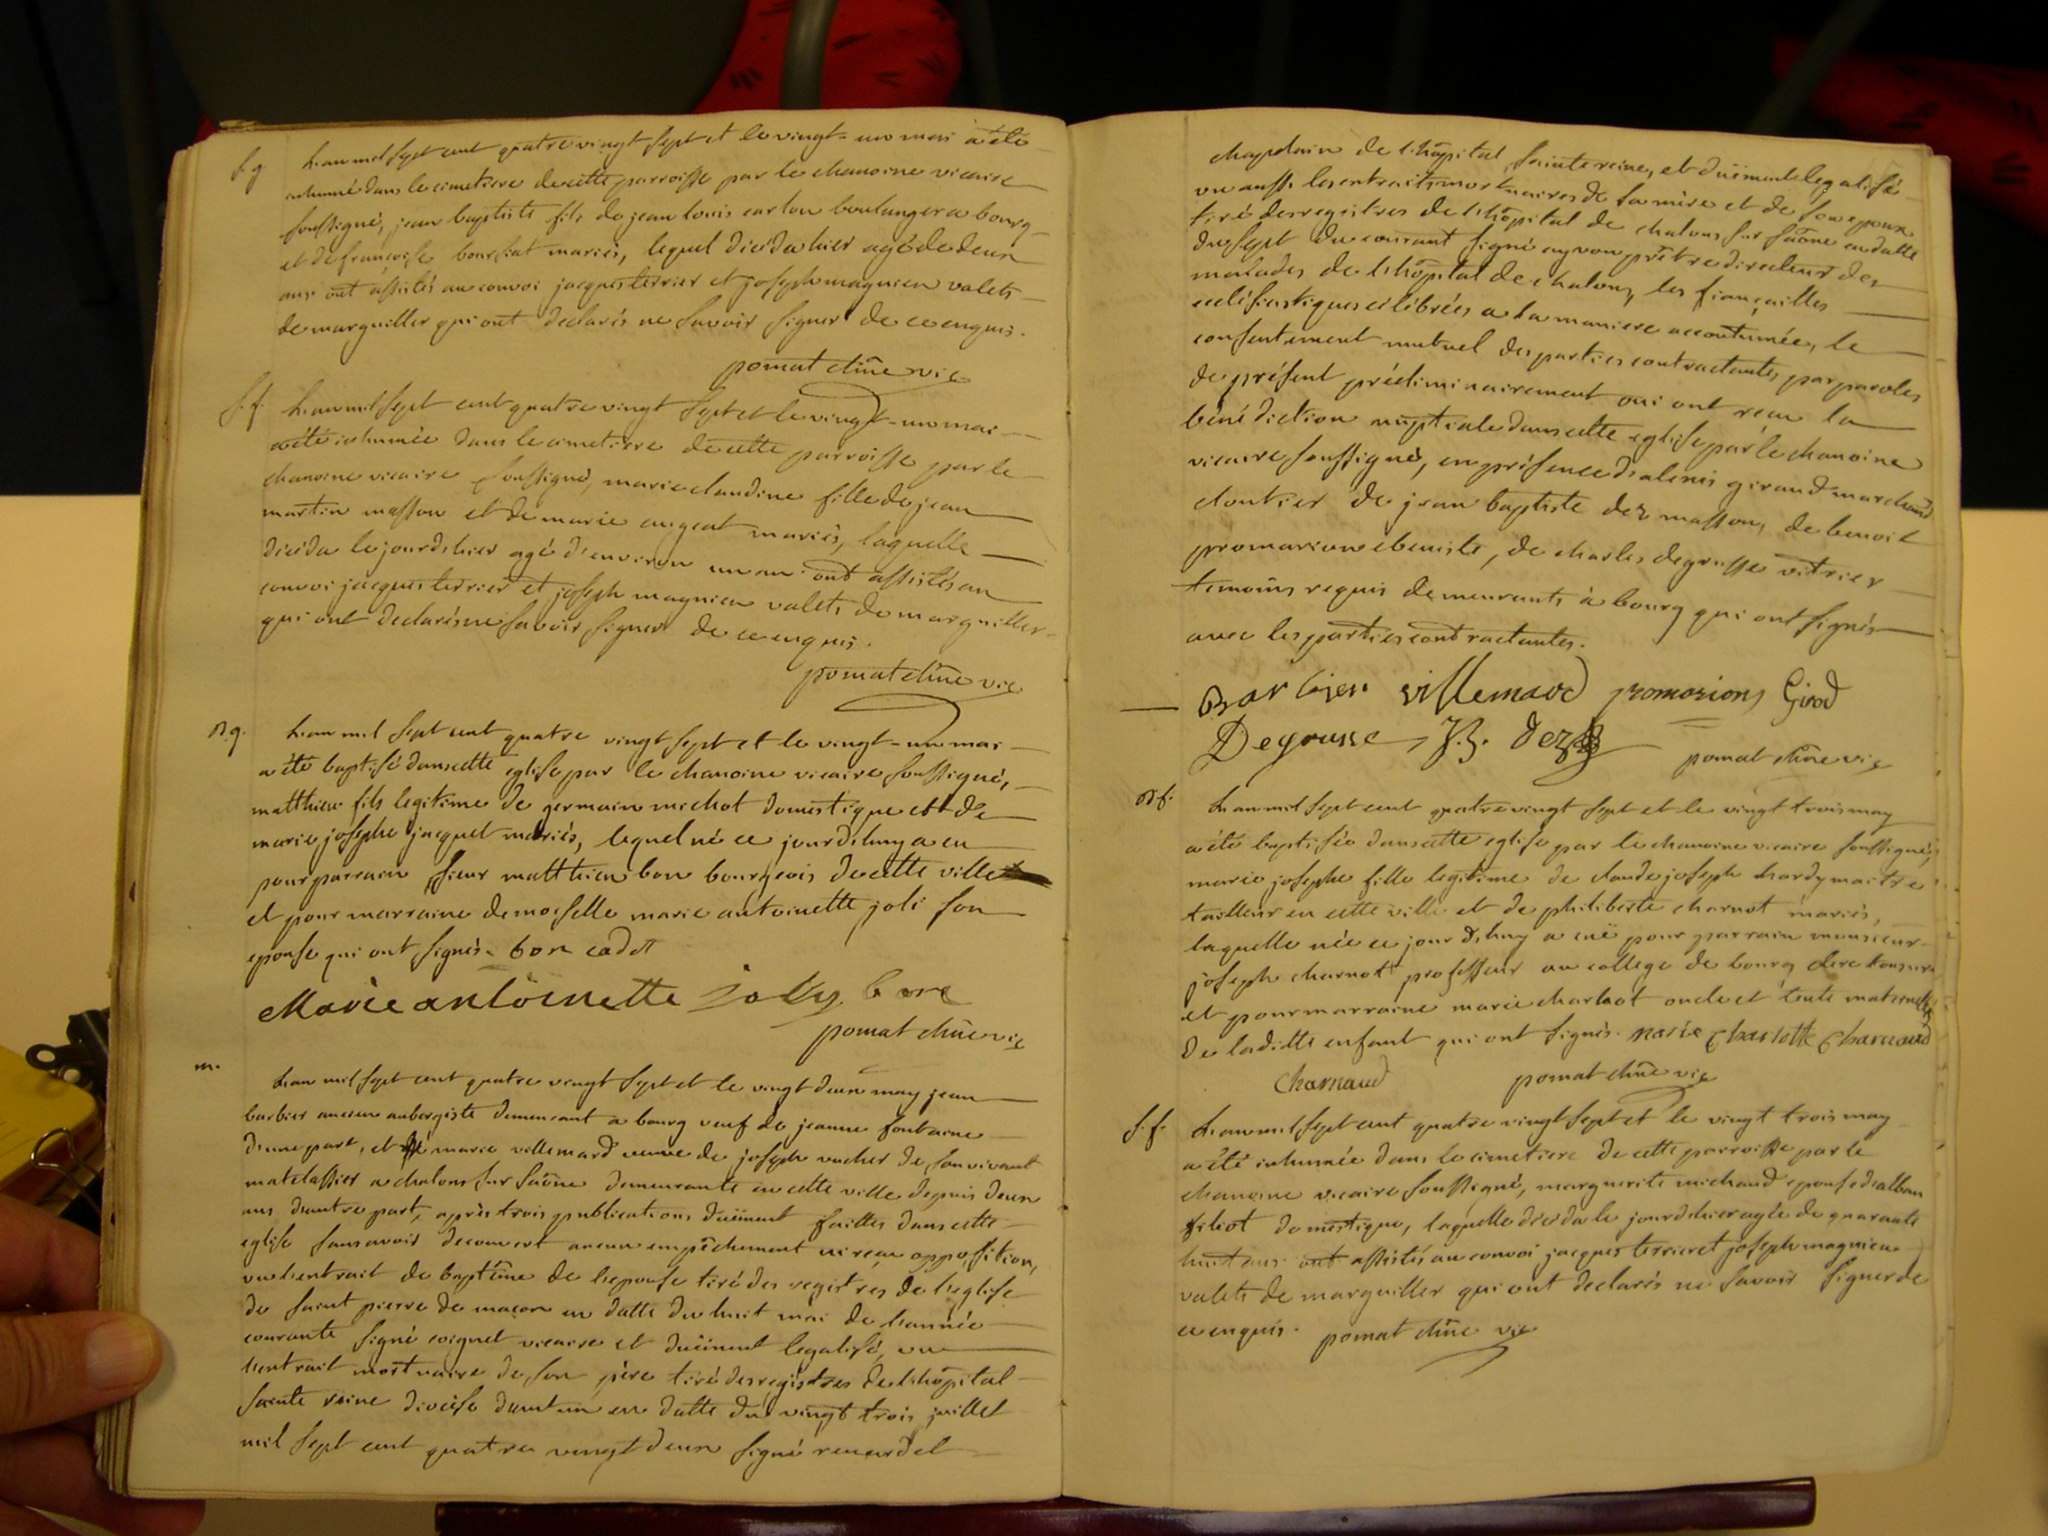 S.g L'an mil sept cent quatre vingt sept et le vingt-un mai a été
inhumé dans le cimetiere de cette parroisse par le chanoine vicaire
soussigné, jean baptiste fils de jean louis carlon boulanger a bourg
et de françoise boursiat mariés, lequel décéda hier agé de deux
ans ont assistés au convoi jacques terrier et joseph magnien valets
de marguiller qui ont declarés ne savoir signer de ce enquis.
pomat chne vic
S.f. L'an mil sept cent quatre vingt sept et le vingt-un mai
a été inhumée dans le cimetiere de cette parroisse par le
chanoine vicaire soussigné, marie claudine fille de jean
martin masson et de marie mariés, laquelle
décéda le jour d'hier agé d'environ un an ont assistés au
convoi jacques terrier et joseph magnien valets de marguiller
qui ont declarés ne savoir signer de ce enquis.
pomat chne vic
B.g. L'an mil sept cent quatre vingt sept et le vingt-un mai
a été baptisé dans cette eglise par le chanoine vicaire soussigné,
matthieu fils legitime de germain michot domestique et de
marie josephe jacquet mariés, lequel né ce jour d'huy a eu
pour parrain sieur matthieu bon bourgeois de cette ville
et pour marraine demoiselle marie antoinette joli son
epouse qui ont signés. bon cadet
Marie antoinette jolly bon
pomat chne vic
m. L'an mil sept cent quatre vingt sept et le vingt deux may jean
barbier ancien aubergiste demeurant a bourg veuf de jeanne fontaine
d'une part, et marie villemard veuve de joseph vucher de son vivant
matelassier a chalons sur saône demeurante en cette ville depuis deux
ans d'autre part, après trois publications düement faittes dans cette
eglise sans avoir decouvert aucun empêchement ni reçu opposition,
vu l'extrait de baptême de l'epouse tiré des registres de l'eglise
de saint pierre de macon en datte du huit mai de l'année
courante signé coignet vicaire et düement legalisé, vu
l'extrait mortuaire de son père tiré des registres de l'hôpital
sainte reine diocèse d'autun en datte du vingt trois juillet
mil sept cent quatre vingt deux signé renardet
chapelain de l'hôpital sainte reine, et düement legalisé
vu aussi les extraits mortuaires de sa mère et de son epoux
tiré des registres de l'hôpital de chalons sur saône en datte
du sept du courant signé prêtre directeur des
malades de l'hôpital de chalons, les fiançailles
ecclésiastiques célébrées a la maniere accoutumée, le
consentement mutuel des parties contractantes par paroles
de présent préliminairement oui ont reçu la
bénédiction nuptiale dans cette eglise par le chanoine
vicaire soussigné, en présence d'alexis giraud marchand
cloutier de jean baptiste dez masson, de benoit
promarion ebeniste, de charles degrusse vitrier
temoins requis demeurants à bourg qui ont signés
avec les parties contractantes.
Barbier villemard promorion Girod
Degrusse J.B. dez
pomat chne vic
B.f. L'an mil sept cent quatre vingt sept et le vingt trois may
a été baptisée dans cette eglise par le chanoine vicaire soussigné,
marie josephe fille legitime de claude joseph hardy maitre
tailleur en cette ville et de philiberte charnot mariés,
laquelle née ce jour d'huy a eüe pour parrain monsieur
joseph charnot professeur au college de bourg clerc tonsuré
et pour marraine marie charlot oncle et tante maternelle
de laditte enfant qui ont signés. marie charlotte Charnaud
Charnaud pomat chne vic
S.f. L'an mil sept cent quatre vingt sept et le vingt trois may
a été inhumée dans le cimetiere de cette parroisse par le
chanoine vicaire soussigné, marguerite michaud epouse d'alban
filiot domestique, laquelle décéda le jour d'hier agée de quarante
huit ans ont assistés au convoi jacques terrier et joseph magnien
valets de marguiller qui ont declarés ne savoir signer de
ce enquis. pomat chne vic